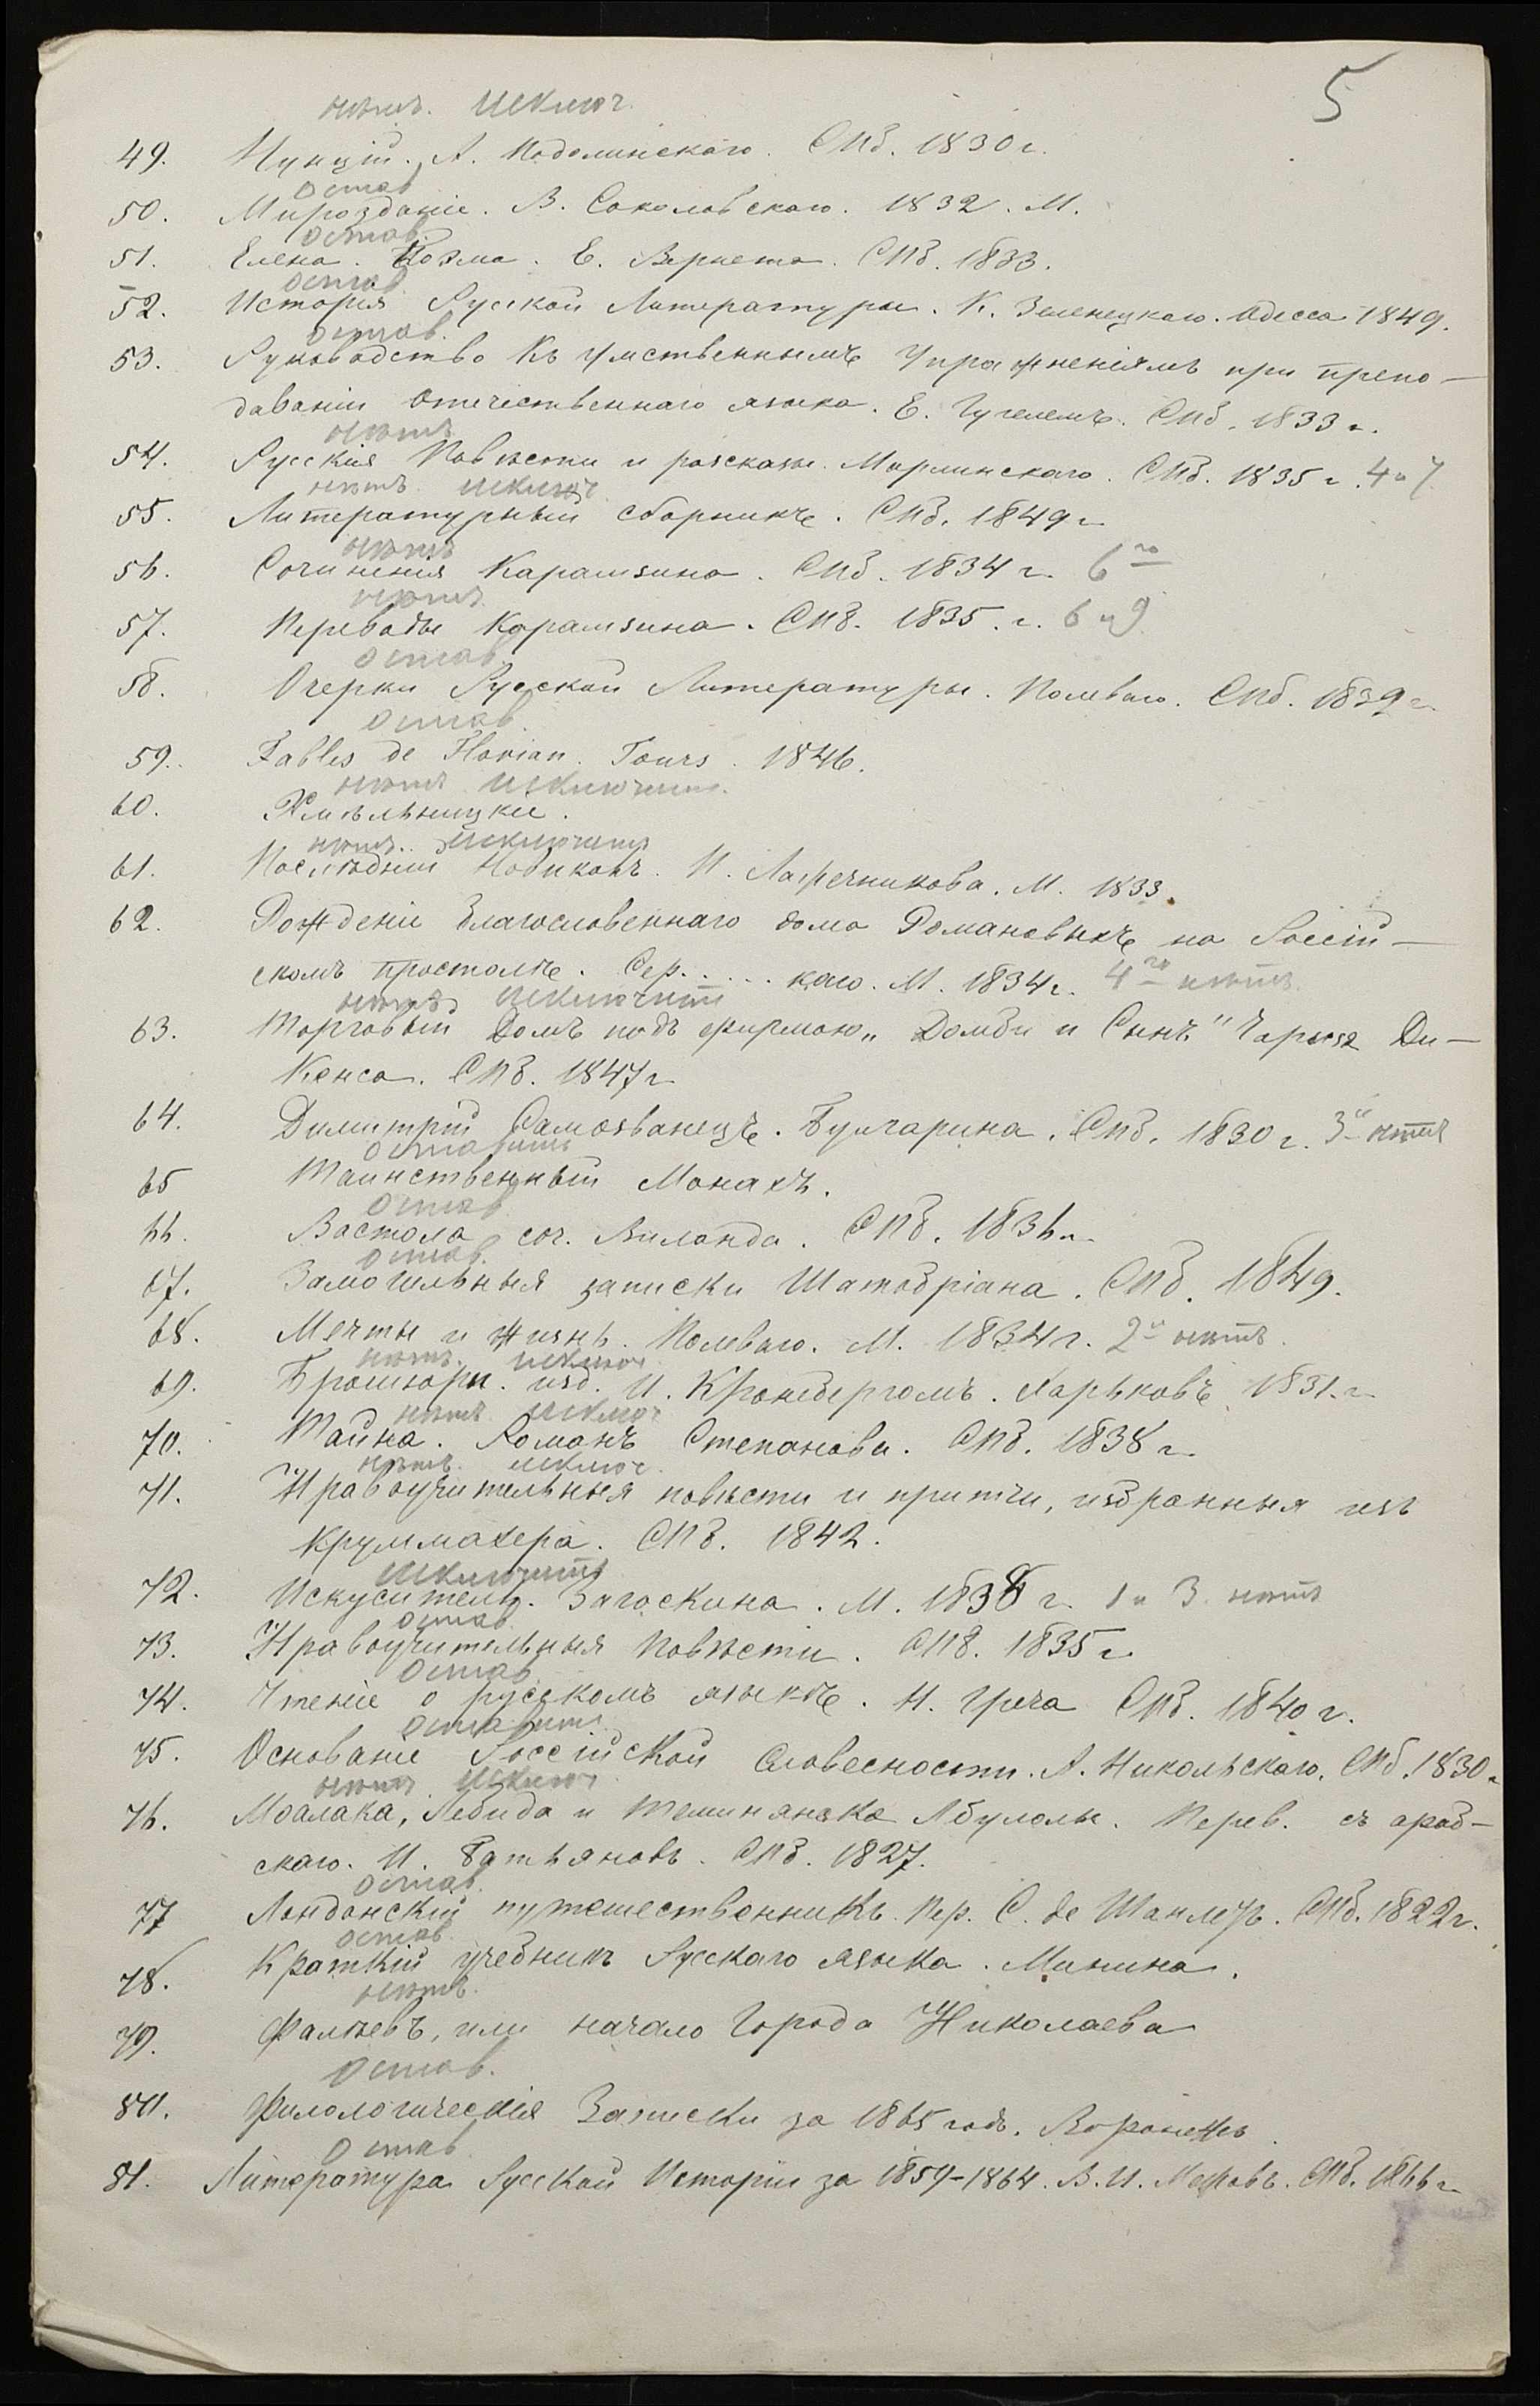 5
нѣтъ. Исключ.
49. Нунцiй. А. Подолинскаго. СПб. 1830 г.
остав
50. Мирозданiе. В. Соколовскаго. 1832. М.
остав.
51. Елена. Поэма. Е. Вернета. СПб. 1833.
остав
52. Исторiя Русской Литературы. К. Зеленецкаго. Одесса 1849.
остав.
53. Руководство къ умственнымъ упражненiямъ при препо-
даванiи отечественнаго языка. Е. Гугелемъ. СПб. 1833 г.
нѣтъ
54. Русскiя Повѣсти и разсказы. Марлинскаго. СПб. 1835 г. 4 и 7
нѣтъ. исключ.
55. Литературный сборникъ. СПб. 1849 г.
нѣтъ
56. Сочиненiя Карамзина. СПб. 1834 г. 6го
нѣтъ
57. Переводы Карамзина. СПб. 1835. г. 6 и 9
остав.
58. Очерки Русской Литературы. Полеваго. СПб. 1839 г.
остав.
59. Fables de Florian. Tours. 1846.
нѣтъ исключить.
60. Хмѣльницкiе.
нѣтъ. исключить
61. Послѣднiй Новикъ. И. Лажечникова. М. 1833.
62. Рожденiе благословеннаго дома Романовыхъ на Россiй-
скомъ престолѣ. Сер..... каго. М. 1834 г. 4го нѣтъ.
нѣтъ исключить
63. Торговый Домъ подъ фирмою „Домби и Сынъ" Чарльза Ди-
кенса. СПб. 1847 г.
64. Димитрiй Самозванецъ. Булгарина. СПб. 1830 г. 3й нѣтъ
оставить
65 Таинственный Монахъ.
остав
66. Вастола соч. Виланда. СПб. 1836 г.
остав.
67. Замогильныя записки Шатобрiана. СПб. 1849.
68. Мечты и жизнь. Полеваго. М. 1834 г. 2й нѣтъ.
нѣтъ. исключ
69. Брошюры. изд. И. Кронебергомъ. Харьковъ 1831. г.
нѣтъ исключ
70. Тайна. Романъ Степанова. СПб. 1838 г.
нѣтъ. исключ.
71. Нравоучительныя повѣсти и притчи, избранныя изъ
Круммахера. СПб. 1842.
Исключить
72. Искуситель. Загоскина. М. 1838 г. 1 и 3. нѣтъ
остав.
73. Нравоучительныя повѣсти. СПб. 1835 г.
остав
74. Чтенiе о русскомъ языкѣ. Н. Греча СПб. 1840 г.
оставить
75. Основанiе Россiйской Словесности. А. Никольскаго. СПб. 1830 г.
нѣтъ. исключ.
76. Моалака, Лебида и Абулолы. Перев. съ араб-
скаго. И. Батьяновъ. СПб. 1827.
остав.
77 Лондонскiй путешественникъ. Пер. С. де Шаплетъ. СПб. 1822 г.
остав.
78. Краткiй учебникъ Русскаго языка. Минина.
нѣтъ.
79. Фалѣевъ, или начало города Николаева
остав.
80. Филологическiя Записки за 1865 годъ. Воронежъ.
остав
81. Литература Русской Исторiи за 1859-1864. В. И. Межовъ. СПб. 1866 г.